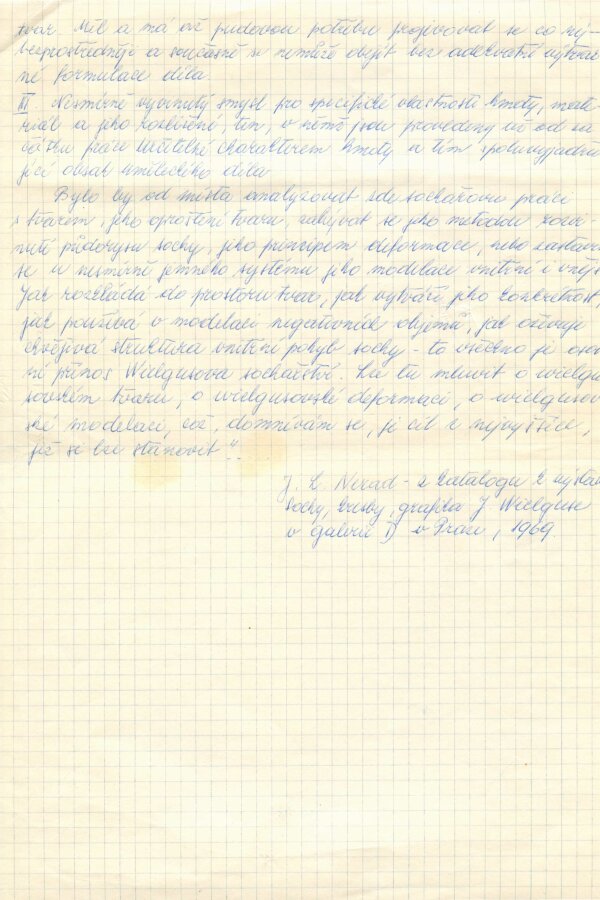 tvar. Měl a má až pudovou potřebu projevovat se co nej-
bezprostředněji a současně se nemůže obejít bez adekvátní výtvar-
né formulace díla.
III. Nesmírně vyvinutý smysl pro specifické vlastnosti hmoty, mate-
riál a jeho rozlišení, ten, v němž jsou provedeny už od za-
čátku práce určitelné charakterem hmoty a tím spoluvyjadřu-
jící obsah uměleckého díla.
Bylo by od místa analyzovat zde sochařovu práci
s tvarem, jeho oproštění tvaru, zabývat se jeho metodou rozvi-
nutí půdorysu sochy, jeho principem deformace, nebo zastavit
se u nesmírně jemného systému jeho modelace vnitřní i vnějš
Jak rozkládá do prostoru tvar, jak vytváří jeho konkrétnost,
jak používá v modelaci negativních objemů, jak oživuje
struktura vnitřní pohyb sochy - to všechno je osob
ní přínos Wielgusova sochařství. Lze tu mluvit o wielgu-
sovském tvaru, o wielgusovské deformaci, o wielgusov-
ské modelaci, což, domnívám se, je cíl z nejvyšších,
jež si lze stanovit".
J. L. Nerad - z katalogu k výstavě
sochy, kresby, grafika J. Wielguse
v galerii D v Praze, 1969